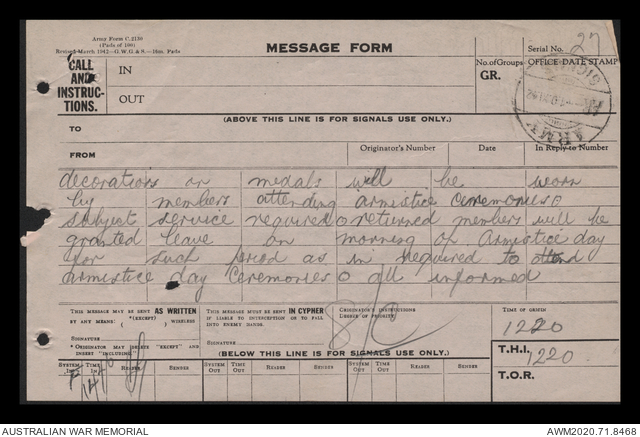 Army Form C.2130
(Pads of 100)
Revised March 1942—G.W.G. & S.—Hon. Pads
MESSAGE FORM
Serial No. 27
CALL
AND
INSTRUC-
TIONS.
IN
OUT
No. of Groups
GR.
OFFICE DATE STAMP
SIGNALS
ARMY
(ABOVE THIS LINE IS FOR SIGNALS USE ONLY.)
TO
FROM
Originator's Number
Date
In Reply to Number
decorations or medals will be worn
by members attending armistice ceremonies o
subject service required o returned members will be
granted leave on morning of Armistice day
for such period as is required to attend
armistice day ceremonies o all informed
THIS MESSAGE MAY BE SENT AS WRITTEN
BY ANY MEANS. * (EXCEPT) WIRELESS
SIGNATURE
* ORIGINATOR MAY DELETE "EXCEPT" AND
INSERT "INCLUDING."
THIS MESSAGE MUST BE SENT IN CYPHER
IF LIABLE TO INTERCEPTION OR TO FALL
INTO ENEMY HANDS.
SIGNATURE
ORIGINATOR'S INSTRUCTIONS
DEGREE OF PRIORITY
TIME OF ORIGIN
1220
(BELOW THIS LINE IS FOR SIGNALS USE ONLY.)
T.H.I. 1220
T.O.R.
SYSTEM IN TIME IN READER SENDER SYSTEM OUT TIME OUT READER SENDER SYSTEM OUT TIME OUT READER SENDER
AUSTRALIAN WAR MEMORIAL
AWM2020.71.8468